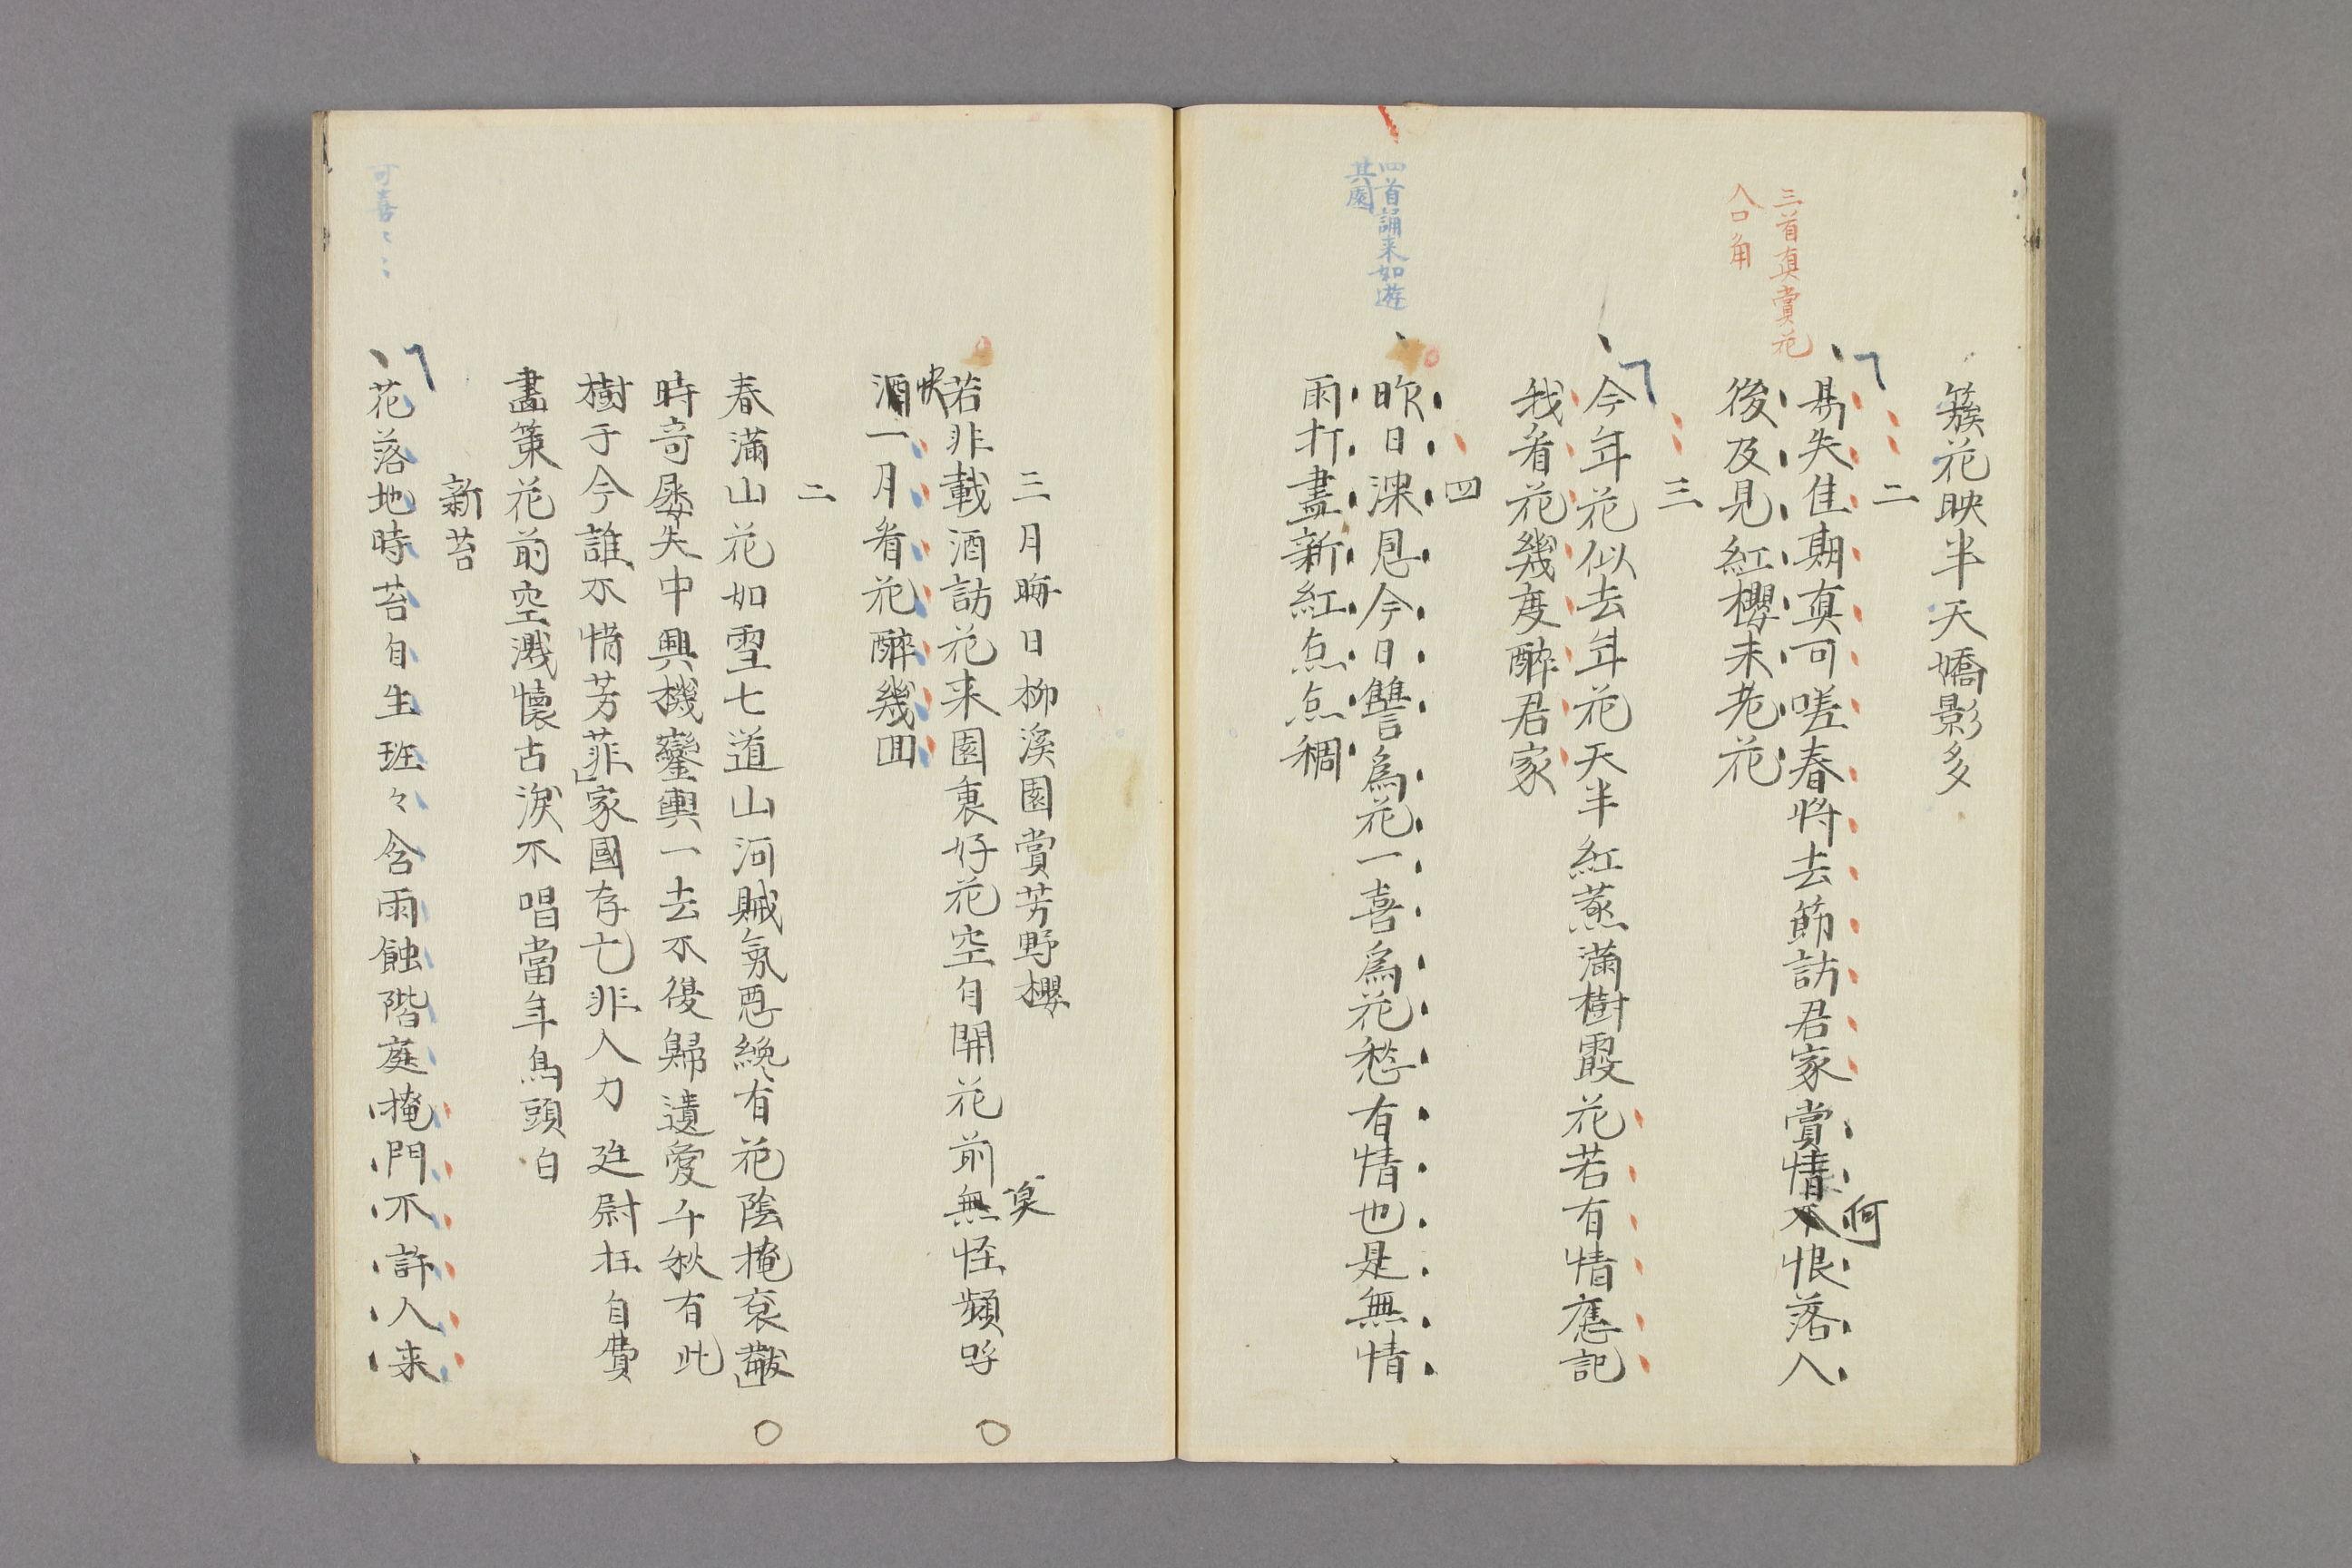 簇花映半天嬌影多
三首真賞花
入口角
二
易失佳期真可嗟春將去節訪君家賞情不恨落人
何
後及見紅櫻未老花
三
今年花似去年花天半紅蒸滿樹霞花若有情應記
我看花幾度醉君家
四首誦来如遊
其園
四
昨日深恩今日讐為花一喜為花愁有情也是無情
雨打盡新紅点点稠
三月晦日柳溪園賞芳野櫻
若非載酒訪花来園裏好花空自開花前無怪頻呼
快
酒一月看花醉幾回
二
春滿山花如雪七道山河賊氛惡纔有花陰掩袞黻
時奇屡失中興機鑾輿一去不復歸遺愛千秋有此
樹于今誰不惜芳菲家國存亡非人力廷尉枉自費
畫策花前空濺懷古淚不唱當年烏頭白
新苔
可喜〻〻
花落地時苔自生班々含雨蝕階庭掩門不許人来